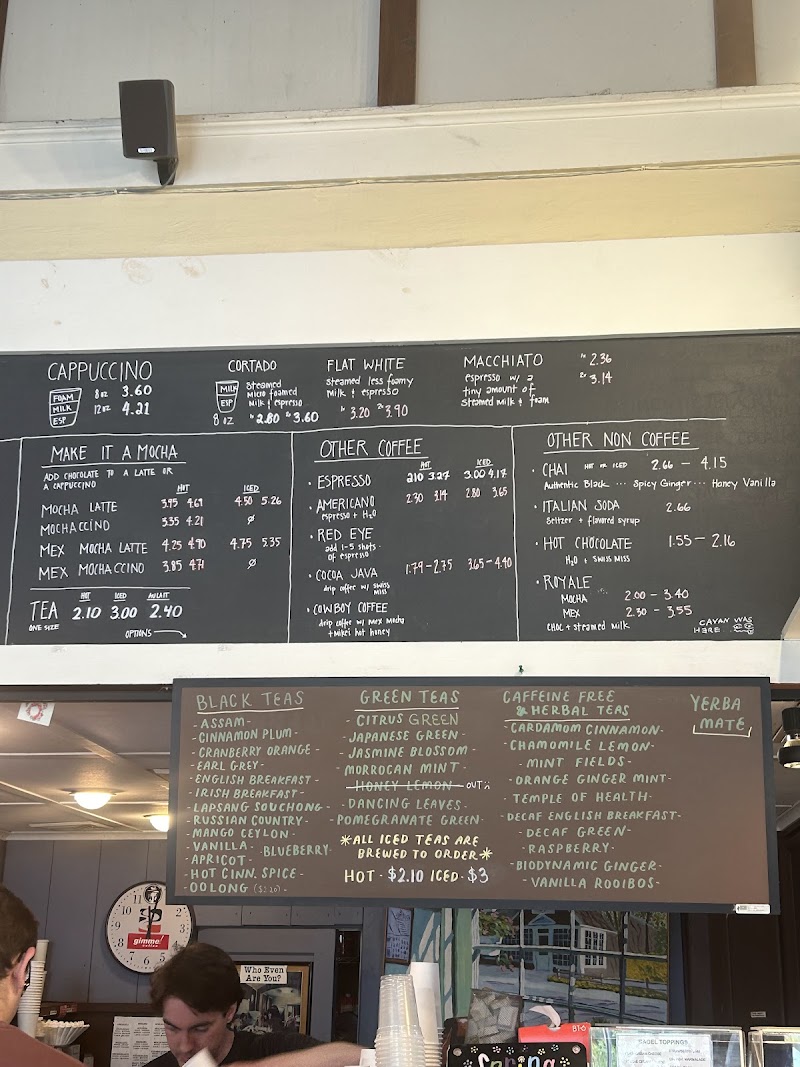 CAPPUCCINO
FOAM
MILK
ESP
8 oz 3.60
12 oz 4.21
CORTADO
MILK
ESP
8 oz
Steamed
micro foamed
milk & espresso
1x 2.80 2x 3.60
FLAT WHITE
steamed less foamy
milk & espresso
1x 3.20 2x 3.90
MACCHIATO
espresso w/ a
tiny amount of
steamed milk & foam
1x 2.36
2x 3.14
MAKE IT A MOCHA
ADD CHOCOLATE TO A LATTE OR
A CAPPUCCINO
HOT ICED
MOCHA LATTE 3.95 4.69 4.50 5.26
MOCHACCINO 3.35 4.21 ø
MEX MOCHA LATTE 4.25 4.90 4.75 5.35
MEX MOCHACCINO 3.85 4.71 ø
HOT ICED AU LAIT
TEA 2.10 3.00 2.40
ONE SIZE
OPTIONS
OTHER COFFEE
HOT ICED
• ESPRESSO 2.10 3.27 3.00 4.17
• AMERICANO 2.30 3.14 2.80 3.65
espresso + H2O
• RED EYE
add 1-5 shots
of espresso
• COCOA JAVA 1.79-2.75 3.65-4.40
drip coffee w/ swiss
miss
• COWBOY COFFEE
drip coffee w/ mex mocha
+ mike's hot honey
OTHER NON COFFEE
• CHAI HOT OR ICED 2.66 - 4.15
Authentic Black ... Spicy Ginger ... Honey Vanilla
• ITALIAN SODA 2.66
Seltzer + flavored syrup
• HOT CHOCOLATE 1.55 - 2.16
H2O + SWISS MISS
• ROYALE
MOCHA 2.00 - 3.40
MEX 2.30 - 3.55
CHOC + steamed milk
CAVAN WAS
HERE
BLACK TEAS
- ASSAM -
- CINNAMON PLUM -
- CRANBERRY ORANGE -
- EARL GREY -
- ENGLISH BREAKFAST -
- IRISH BREAKFAST -
- LAPSANG SOUCHONG -
- RUSSIAN COUNTRY -
- MANGO CEYLON -
- VANILLA - BLUEBERRY -
- APRICOT -
- HOT CINN. SPICE -
- OOLONG ($2.20) -
GREEN TEAS
- CITRUS GREEN
- JAPANESE GREEN -
- JASMINE BLOSSOM -
- MORROCAN MINT -
- HONEY LEMON - OUT
- DANCING LEAVES -
- POMEGRANATE GREEN -
*ALL ICED TEAS ARE
BREWED TO ORDER*
HOT - $2.10 ICED - $3
CAFFEINE FREE
& HERBAL TEAS
- CARDAMOM CINNAMON -
- CHAMOMILE LEMON -
- MINT FIELDS -
- ORANGE GINGER MINT -
- TEMPLE OF HEALTH -
- DECAF ENGLISH BREAKFAST -
- DECAF GREEN -
- RASPBERRY -
- BIODYNAMIC GINGER -
- VANILLA ROOIBOS -
YERBA
MATE
gimme!
coffee
Who Even
Are You?
Spring
BAGEL TOPPINGS